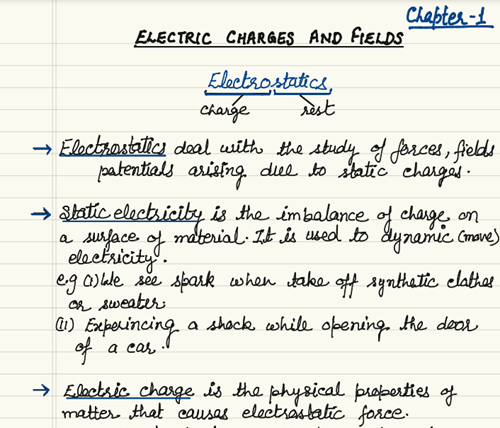 Chapter-1
ELECTRIC CHARGES AND FIELDS
Electrostatics
charge rest
→ Electrostatics deal with the study of forces, fields
potentials arising due to static charges.
→ Static electricity is the imbalance of charge on
a surface of material. It is used to dynamic (move)
electricity.
e.g (i) We see spark when take off synthetic clothes
or sweater.
(ii) Experincing a shock while opening the door
of a car.
→ Electric charge is the physical properties of
matter that causes electrostatic force.